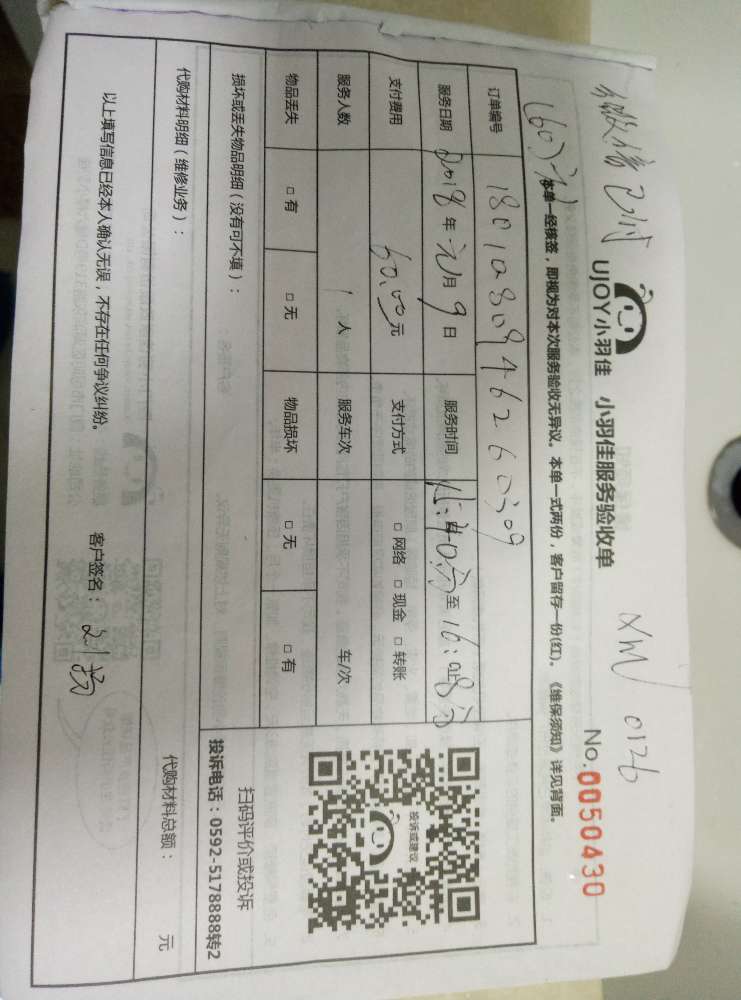 微信已付
XM 0126
UJOY小羽佳 小羽佳服务验收单
No.0050430
(60元)
本单一经核签，即视为对本次服务验收无异议。本单一式两份，客户留存一份(红)。《维保须知》详见背面。
订单编号
服务日期 2018年元月9日 服务时间 至
支付费用 60.00元 支付方式 □网络 □现金 □转账
服务人数 1人 服务车次 车/次
物品丢失 □有 □无 物品损坏 □无 □有
损坏或丢失物品明细（没有可不填）：
投诉或建议
扫码评价或投诉
投诉电话：0592-5178888转2
代购材料明细（维修业务）： 代购材料总额： 元
以上填写信息已经本人确认无误，不存在任何争议纠纷。 客户签名：